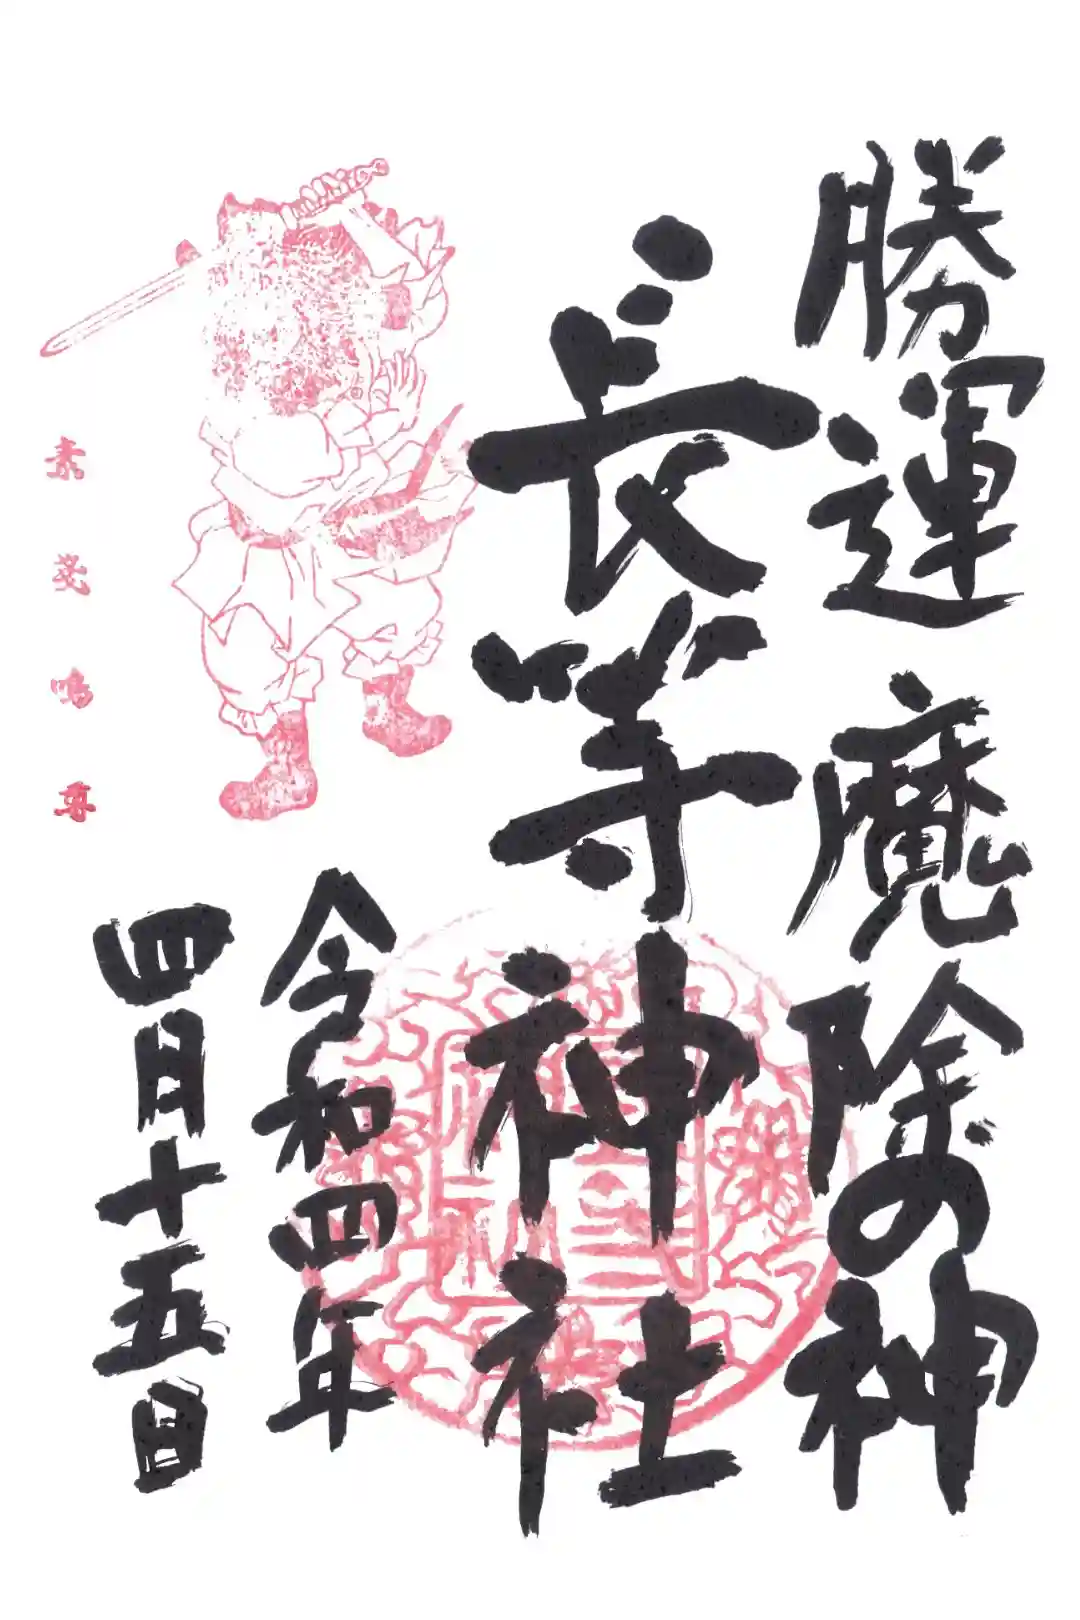 勝運 魔除の神
長等神社
令和四年
四月十五日
素戔嗚尊